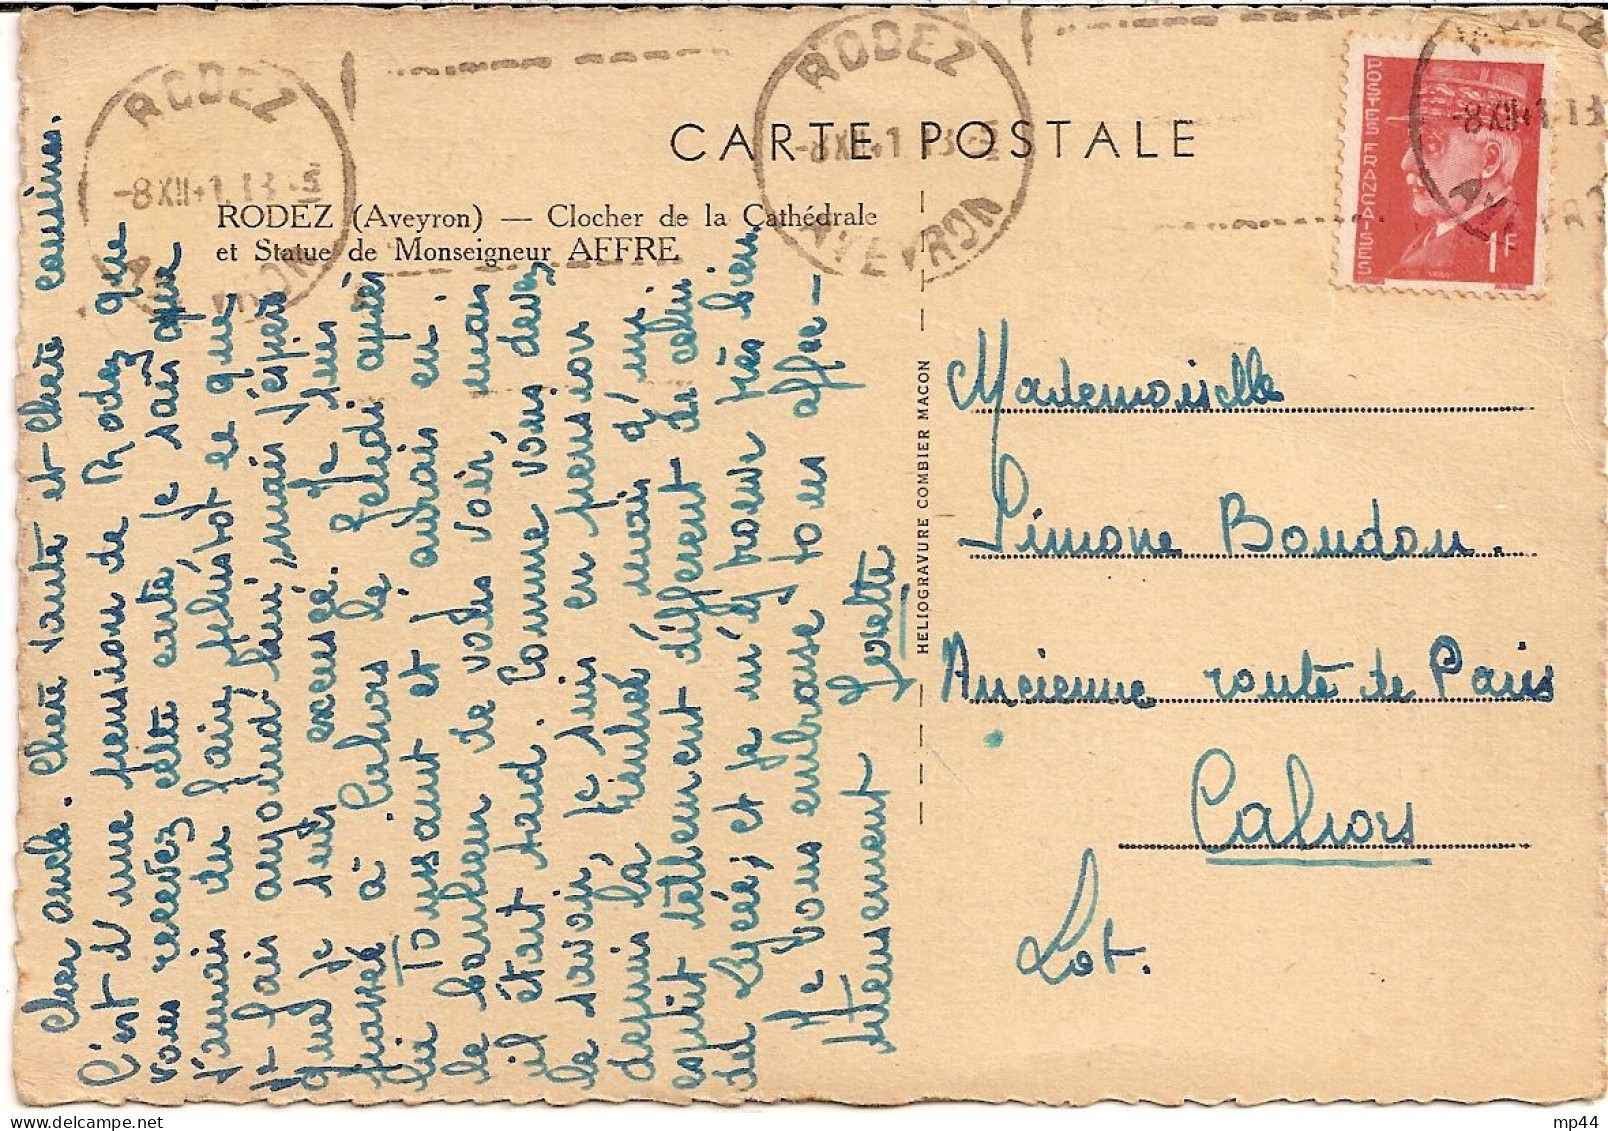 CARTE POSTALE
RODEZ (Aveyron) — Clocher de la Cathédrale
et Statue de Monseigneur AFFRE
RODEZ
-8XII41
AVEYRON
RODEZ
-8XII41
AVEYRON
-8XII41 13
POSTES FRANÇAISES
1F
HELIOGRAVURE COMBIER MACON
Cher oncle. Chère tante et chère cousine.
C'est d'une pension de Rodez que
vous recevez cette carte, je sais que
j'aurais du faire plustôt ce que
je fais aujourd'hui, mais j'espère
que je suis excusé. Je suis
passé à Cahors le jeudi après
la Toussaint et j'aurais eu
le bonheur de vous voir, mais
il était tard. Comme vous devez
le savoir, je suis en pension
depuis la rentrée mais d'un
esprit tellement différent de celui
du Lycée, et je m'y trouve très bien
Je vous embrasse tous affec-
tueusement Josette
Mademoiselle
Simone Boudou.
Ancienne route de Paris
Cahors
Lot.
mp44